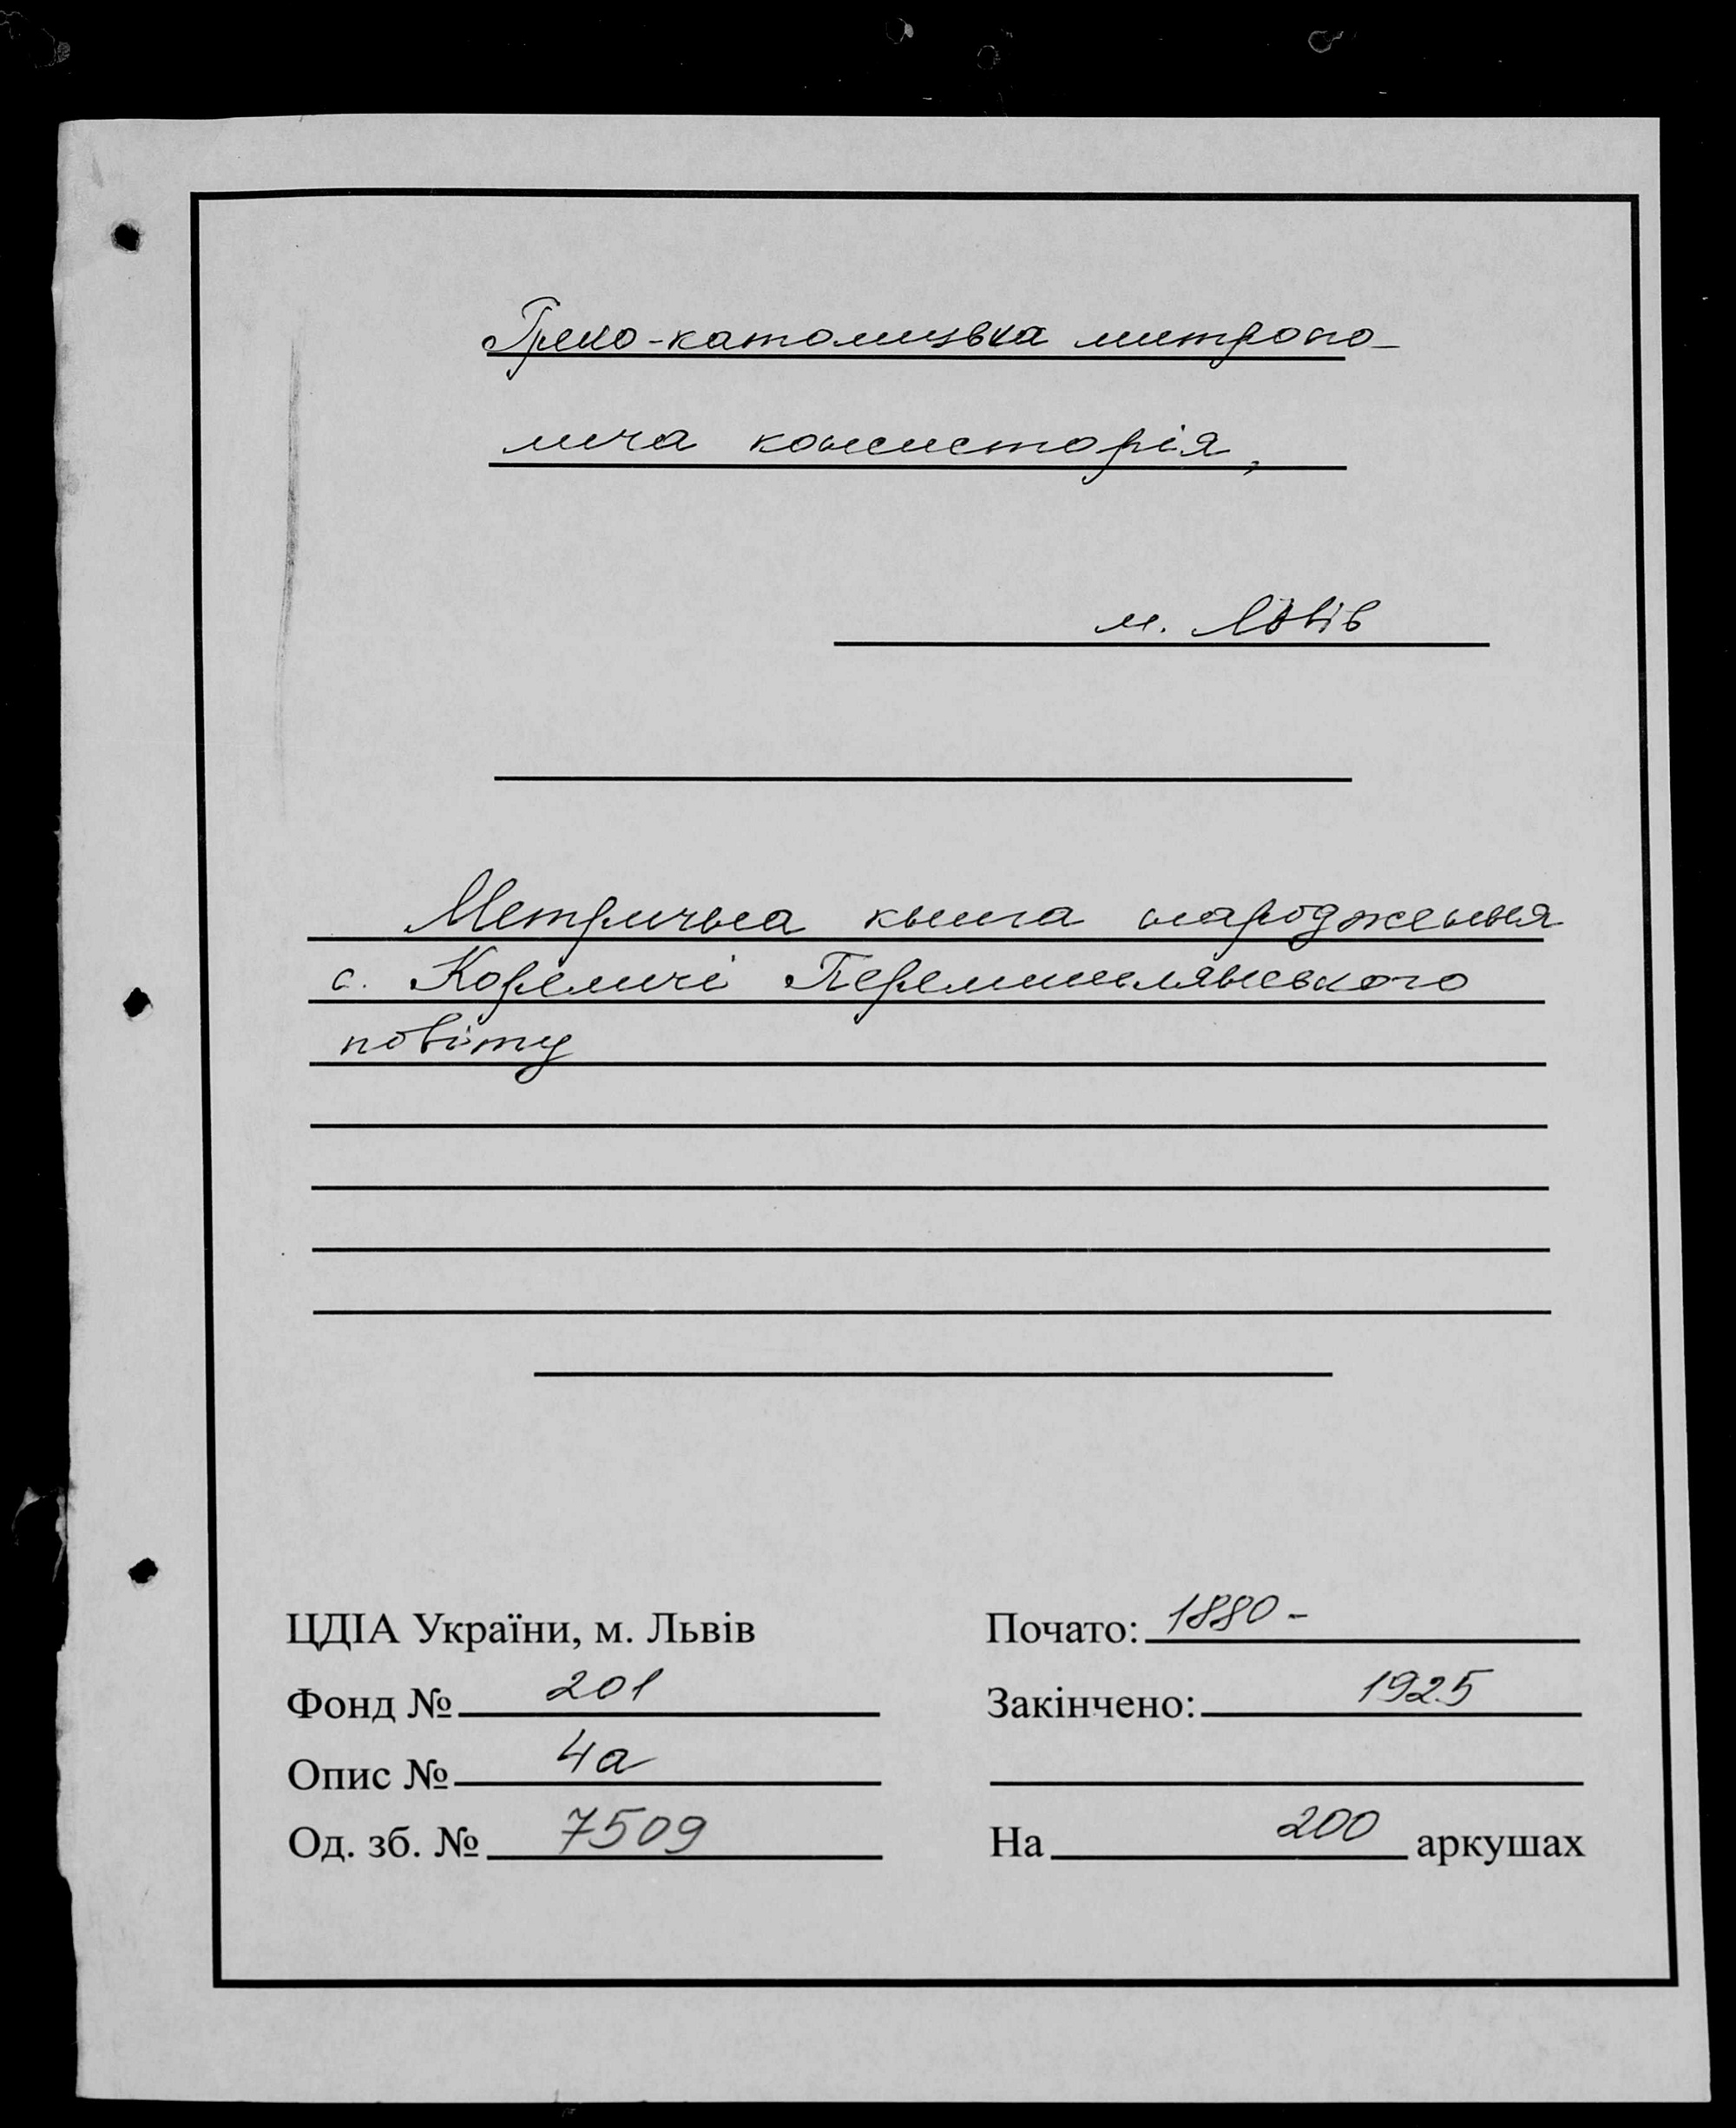 Греко-католицька митропо-
лича консисторія,
м. Львів
Метрична книга народження
с. Кореличі Перемишлянського
повіту
ЦДІА України, м. Львів
Почато: 1880 -
Фонд № 201
Закінчено: 1925
Опис № 4а
Од. зб. № 7509
На 200 аркушах